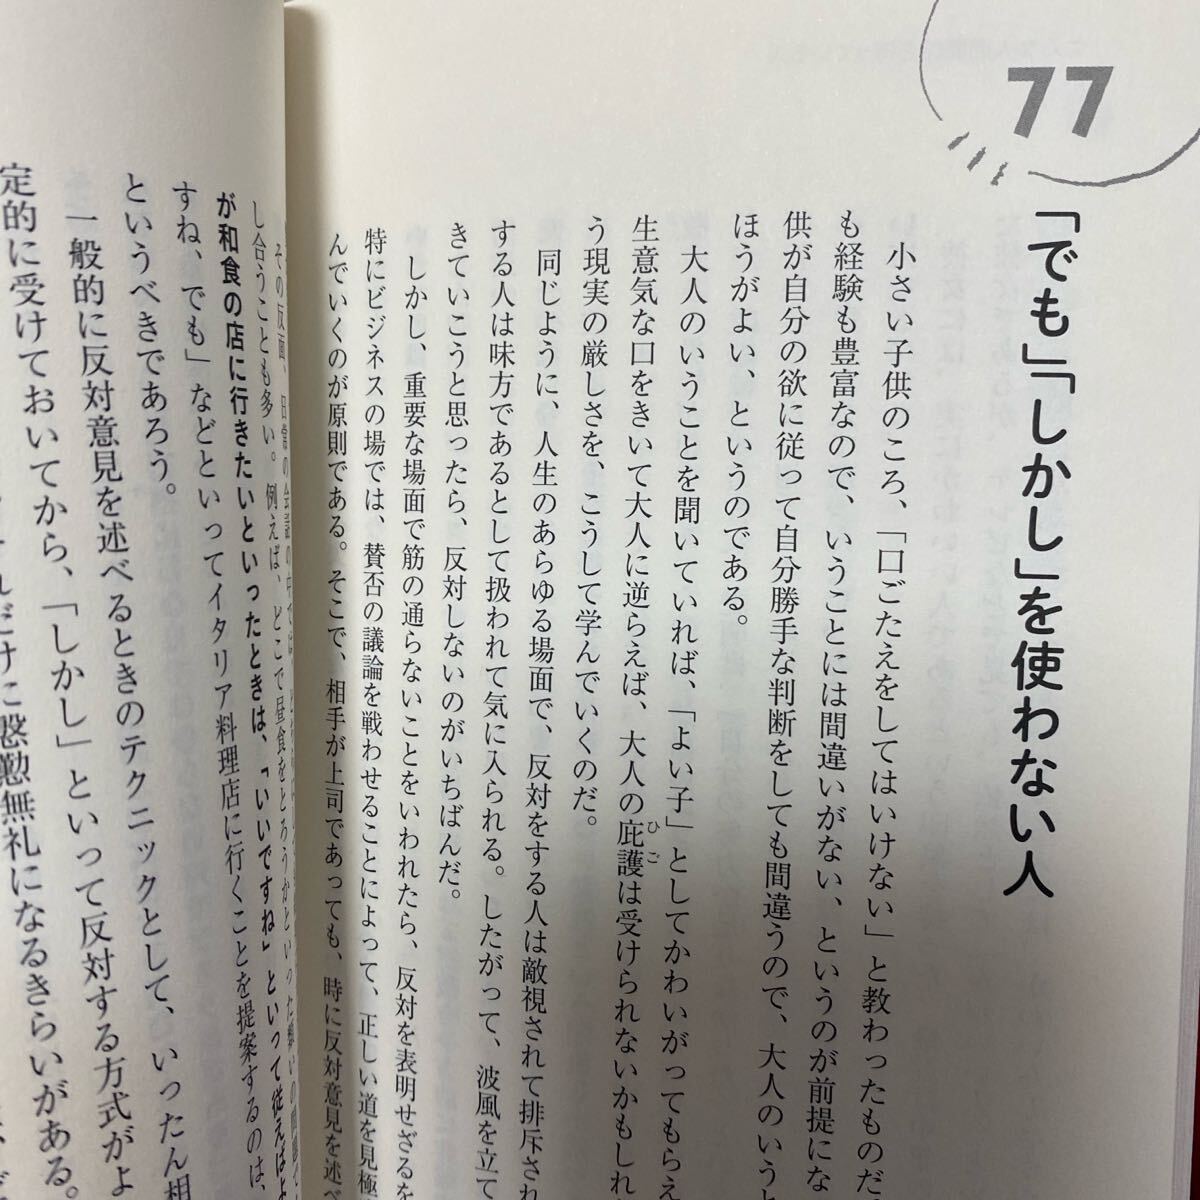 77
「でも」「しかし」を使わない人
小さい子供のころ、「口ごたえをしてはいけない」と教わったものだ
も経験も豊富なので、いうことには間違いがない、というのが前提にな
供が自分の欲に従って自分勝手な判断をしても間違うので、大人のいうと
ほうがよい、というのである。
大人のいうことを聞いていれば、「よい子」としてかわいがってもらえ
生意気な口をきいて大人に逆らえば、大人の庇護は受けられないかもしれ
ひご
う現実の厳しさを、こうして学んでいくのだ。
同じように、人生のあらゆる場面で、反対をする人は敵視されて排斥され
する人は味方であるとして扱われて気に入られる。したがって、波風を立て
きていこうと思ったら、反対しないのがいちばんだ。
しかし、重要な場面で筋の通らないことをいわれたら、反対を表明せざるを
特にビジネスの場では、賛否の議論を戦わせることによって、正しい道を見極
んでいくのが原則である。そこで、相手が上司であっても、時に反対意見を述べ
その反面、日常の会話の中では、
し合うことも多い。例えば、どこで昼食をとろうかといった類いの問題で
が和食の店に行きたいといったときは、「いいですね」といって従えばよ
すね、でも」などといってイタリア料理店に行くことを提案するのは、
というべきであろう。
一般的に反対意見を述べるときのテクニックとして、いったん相
定的に受けておいてから、「しかし」といって反対する方式がよ
だけに慇懃無礼になるきらいがある。